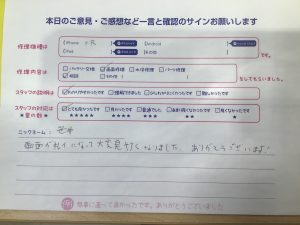 本日のご意見・ご感想など一言と確認のサインお願いします
修理機種は
iPhone
R
Android
iPad
その他
です。
修理内容は
バッテリー交換 画面修理 水没修理 パーツ修理
をしてもらいました。
スタッフの説明は
わかりやすかった 理解できました
スタッフの対応は
とても良かった 良かった 普通でした 良くなかった
★の数
★★★★★ ★★★★ ★★★ ★★ ★
ニックネーム:
画面がキレイになって大変見やすくなりました。ありがとうございます!
無事に直って良かったです。ありがとうございました